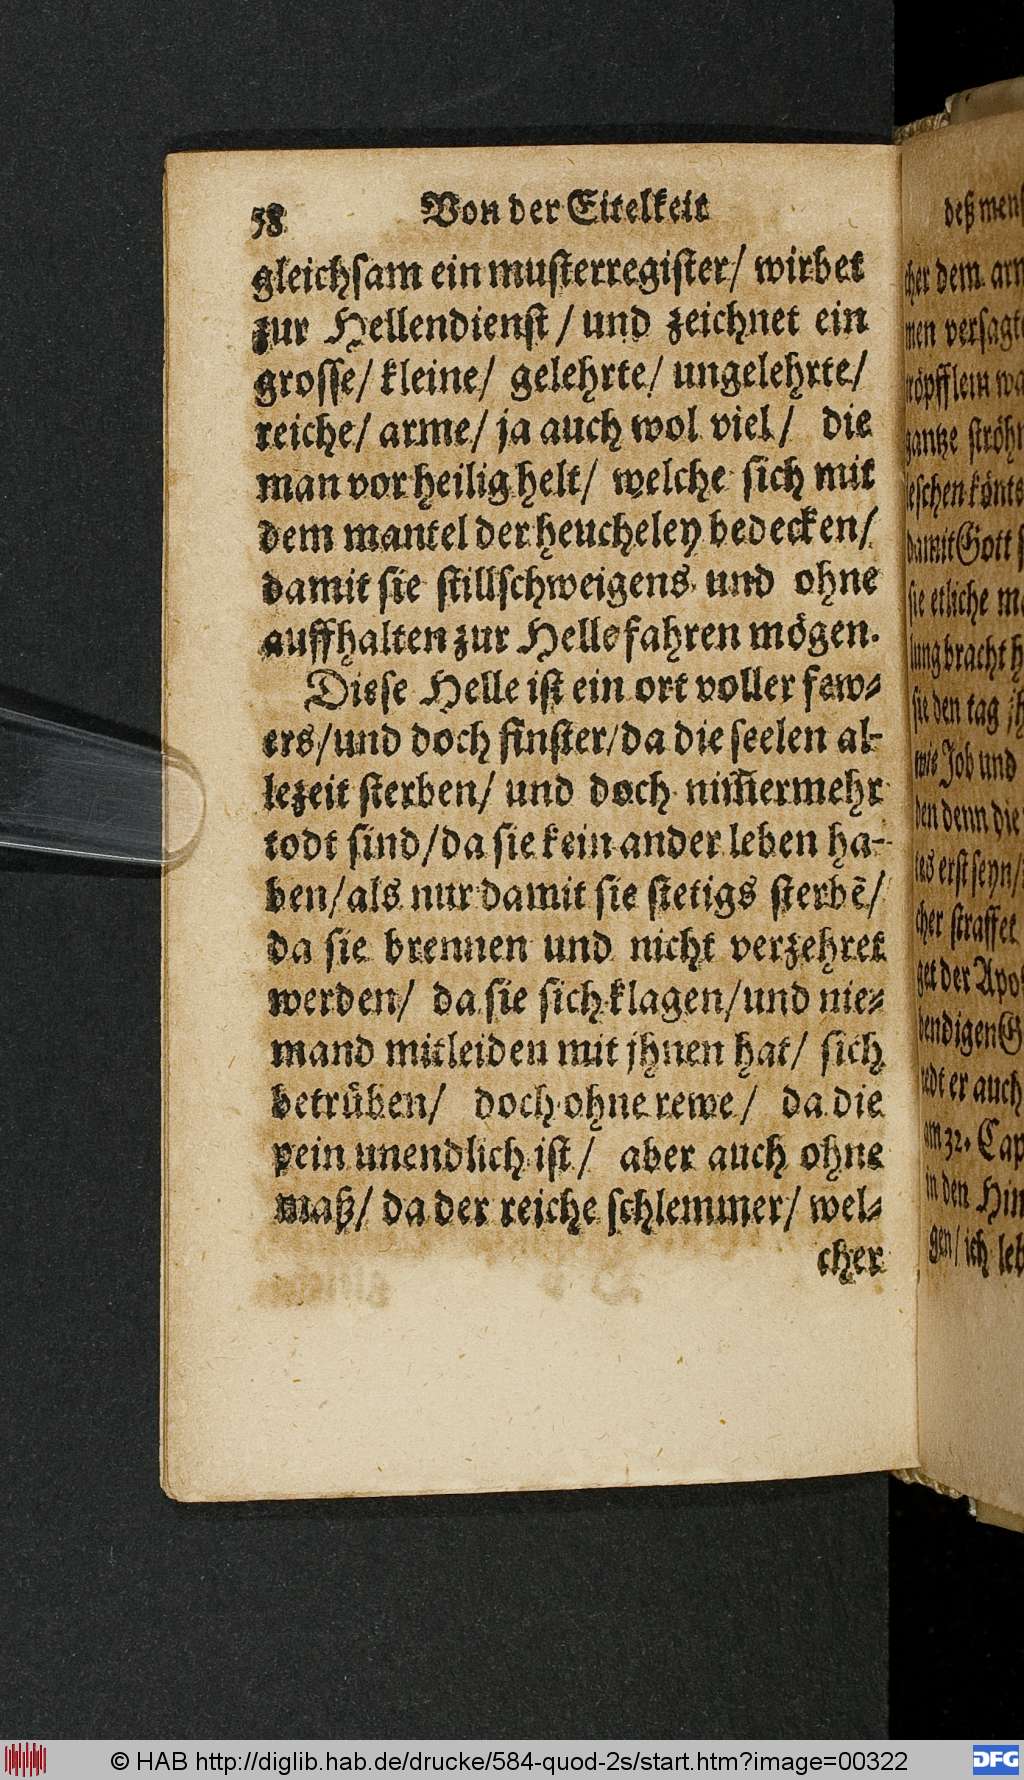 58 Von der Eitelkeit
gleichsam ein musterregister/ wirbet
zur Hellendienst / und zeichnet ein
grosse/ kleine/ gelehrte/ ungelehrte/
reiche/ arme/ ja auch wol viel/ die
man vor heilig helt/ welche sich mit
dem mantel der heucheley bedecken/
damit sie stillschweigens und ohne
auffhalten zur Helle fahren mögen.
Diese Helle ist ein ort voller few-
ers/und doch finster/da die seelen al-
lezeit sterben/ und doch nim̃ermehr
todt sind/da sie kein ander leben ha-
ben/als nur damit sie stetigs sterbē/
da sie brennen und nicht verzehret
werden/ da sie sich klagen/und nie-
mand mitleiden mit jhnen hat/ sich
betrüben/ doch ohne rewe/ da die
pein unendlich ist/ aber auch ohne
maß/ da der reiche schlemmer/ wel-
cher
deß
cher dem
men
gantze
leschen könt
damit Gott
sie etliche
lung bracht
sie den tag
wie Job und
den denn die
tes erst seyn/
cher straffet
get der Apo
bendigen G
redt er auch
am 32. Cap
in den Him
gen/ ich leb
© HAB http://diglib.hab.de/drucke/584-quod-2s/start.htm?image=00322
DFG